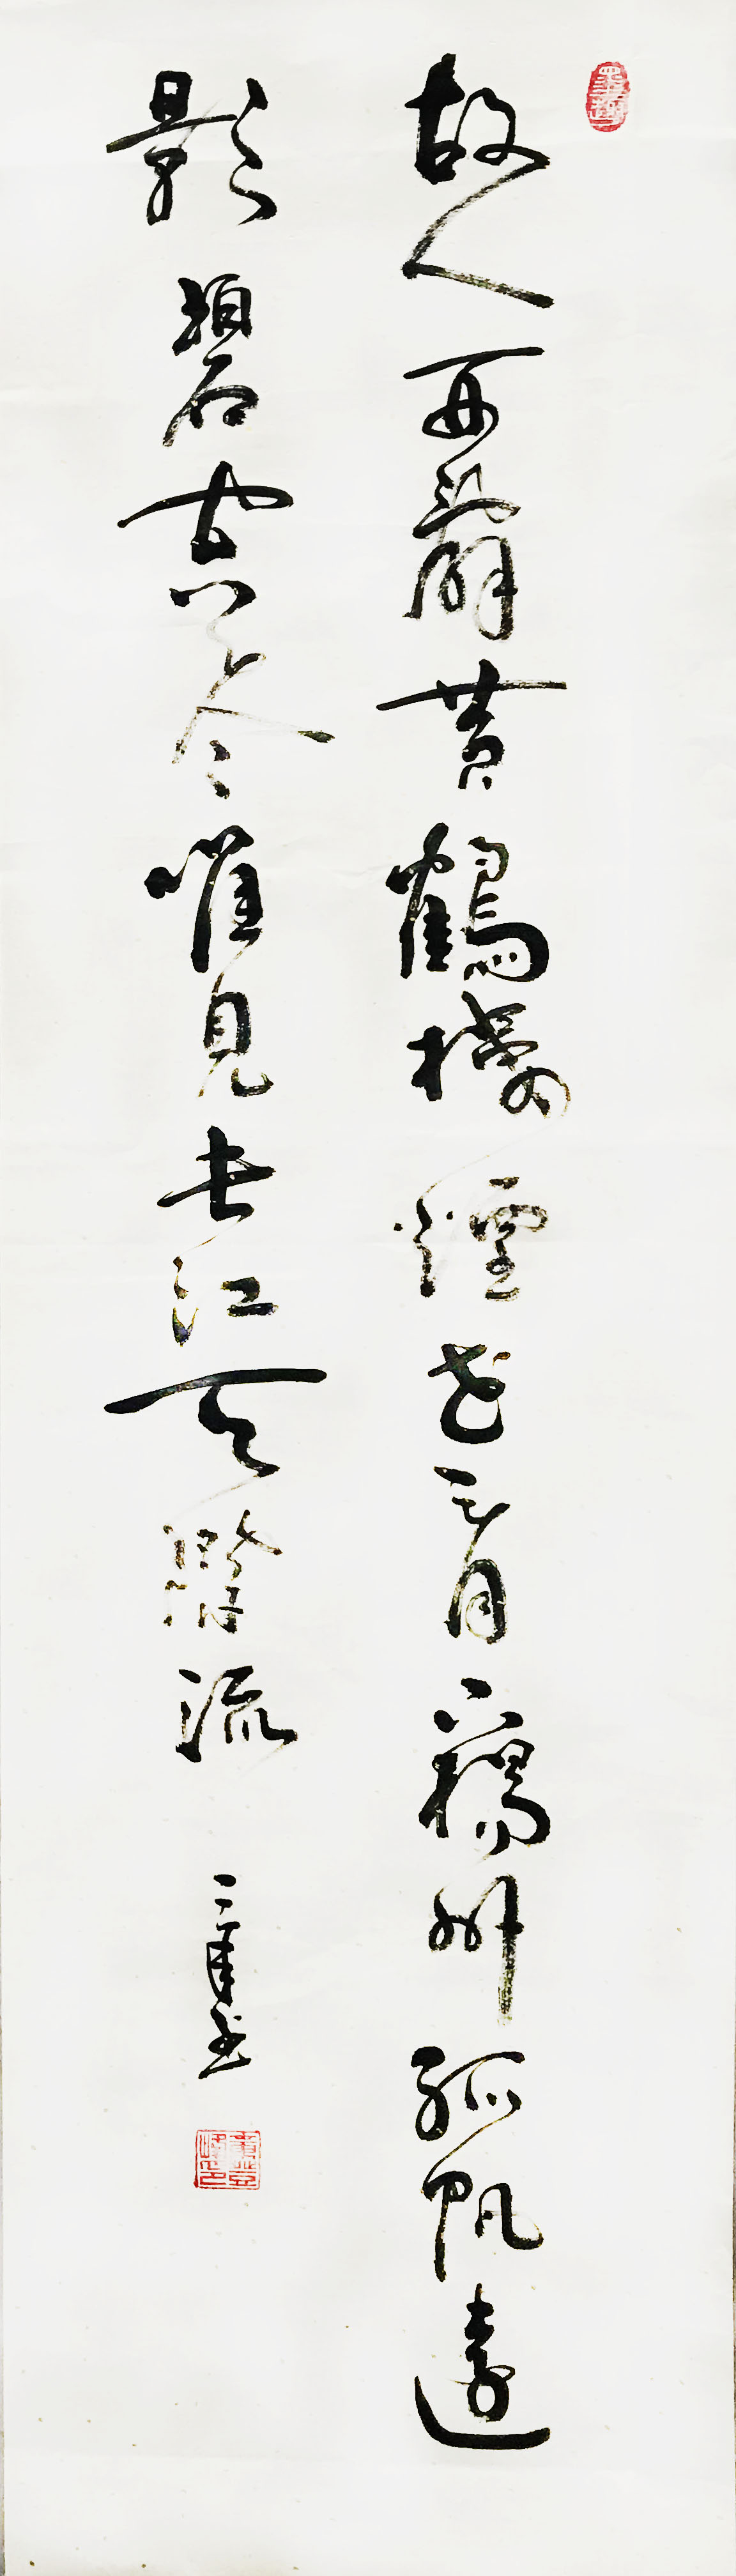 故人西辭黄鶴樓煙花三月下揚州孤帆遠
影碧空尽唯見长江天際流